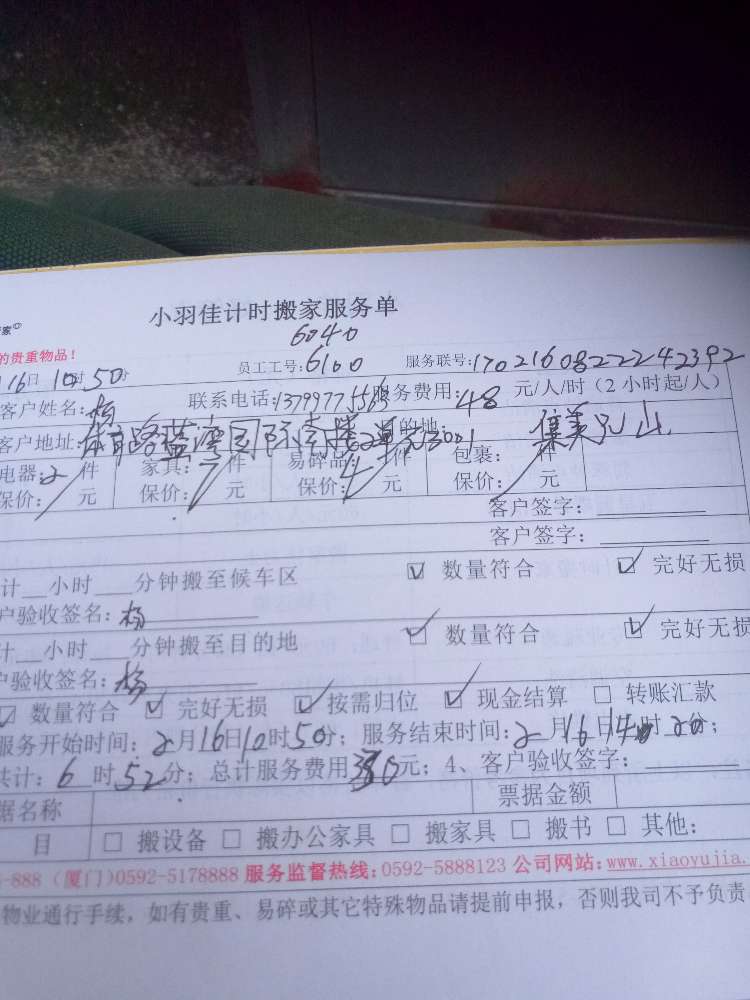 小羽佳计时搬家服务单
家©
6040
的贵重物品!
员工工号:6100 服务联号:1702160822242392
16日 10时50分
客户姓名:杨 联系电话:13799775563 服务费用:48 元/人/时(2小时起/人)
客户地址:体育路蓝湾国际 3001 目的地: 集美 山
电器:2件 家具:7件 易碎品:4件 包裹: 件
保价: 元 保价: 元 保价: 元 保价: 元
客户签字:
客户签字:
计__小时___分钟搬至候车区 ☑ 数量符合 ☑ 完好无损
户验收签名:杨
计__小时___分钟搬至目的地 ☑ 数量符合 ☑ 完好无损
户验收签名:杨
☑ 数量符合 ☑ 完好无损 ☑ 按需归位 ☑ 现金结算 □ 转账汇款
服务开始时间:2月16日10时50分;服务结束时间:2月16日14时20分;
共计:6时52分;总计服务费用 元;4、客户验收签字:
据名称 票据金额
目 □ 搬设备 □ 搬办公家具 □ 搬家具 □ 搬书 □ 其他:
-888(厦门)0592-5178888 服务监督热线:0592-5888123 公司网站:www.xiaoyujia.
物业通行手续,如有贵重、易碎或其它特殊物品请提前申报,否则我司不予负责